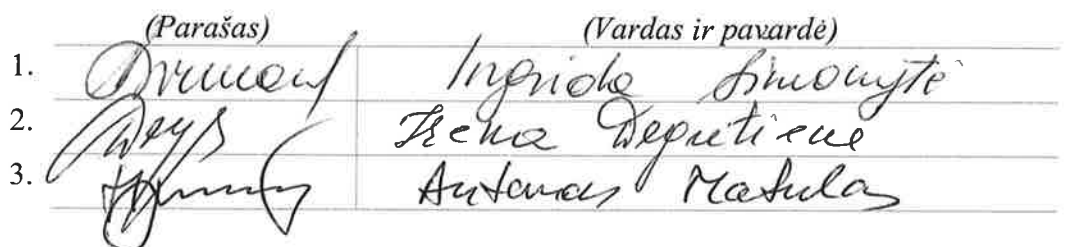 (Parašas) (Vardas ir pavardė)
1. Ingrida Šimonytė
2. Irena Degutienė
3. Antanas Matulas